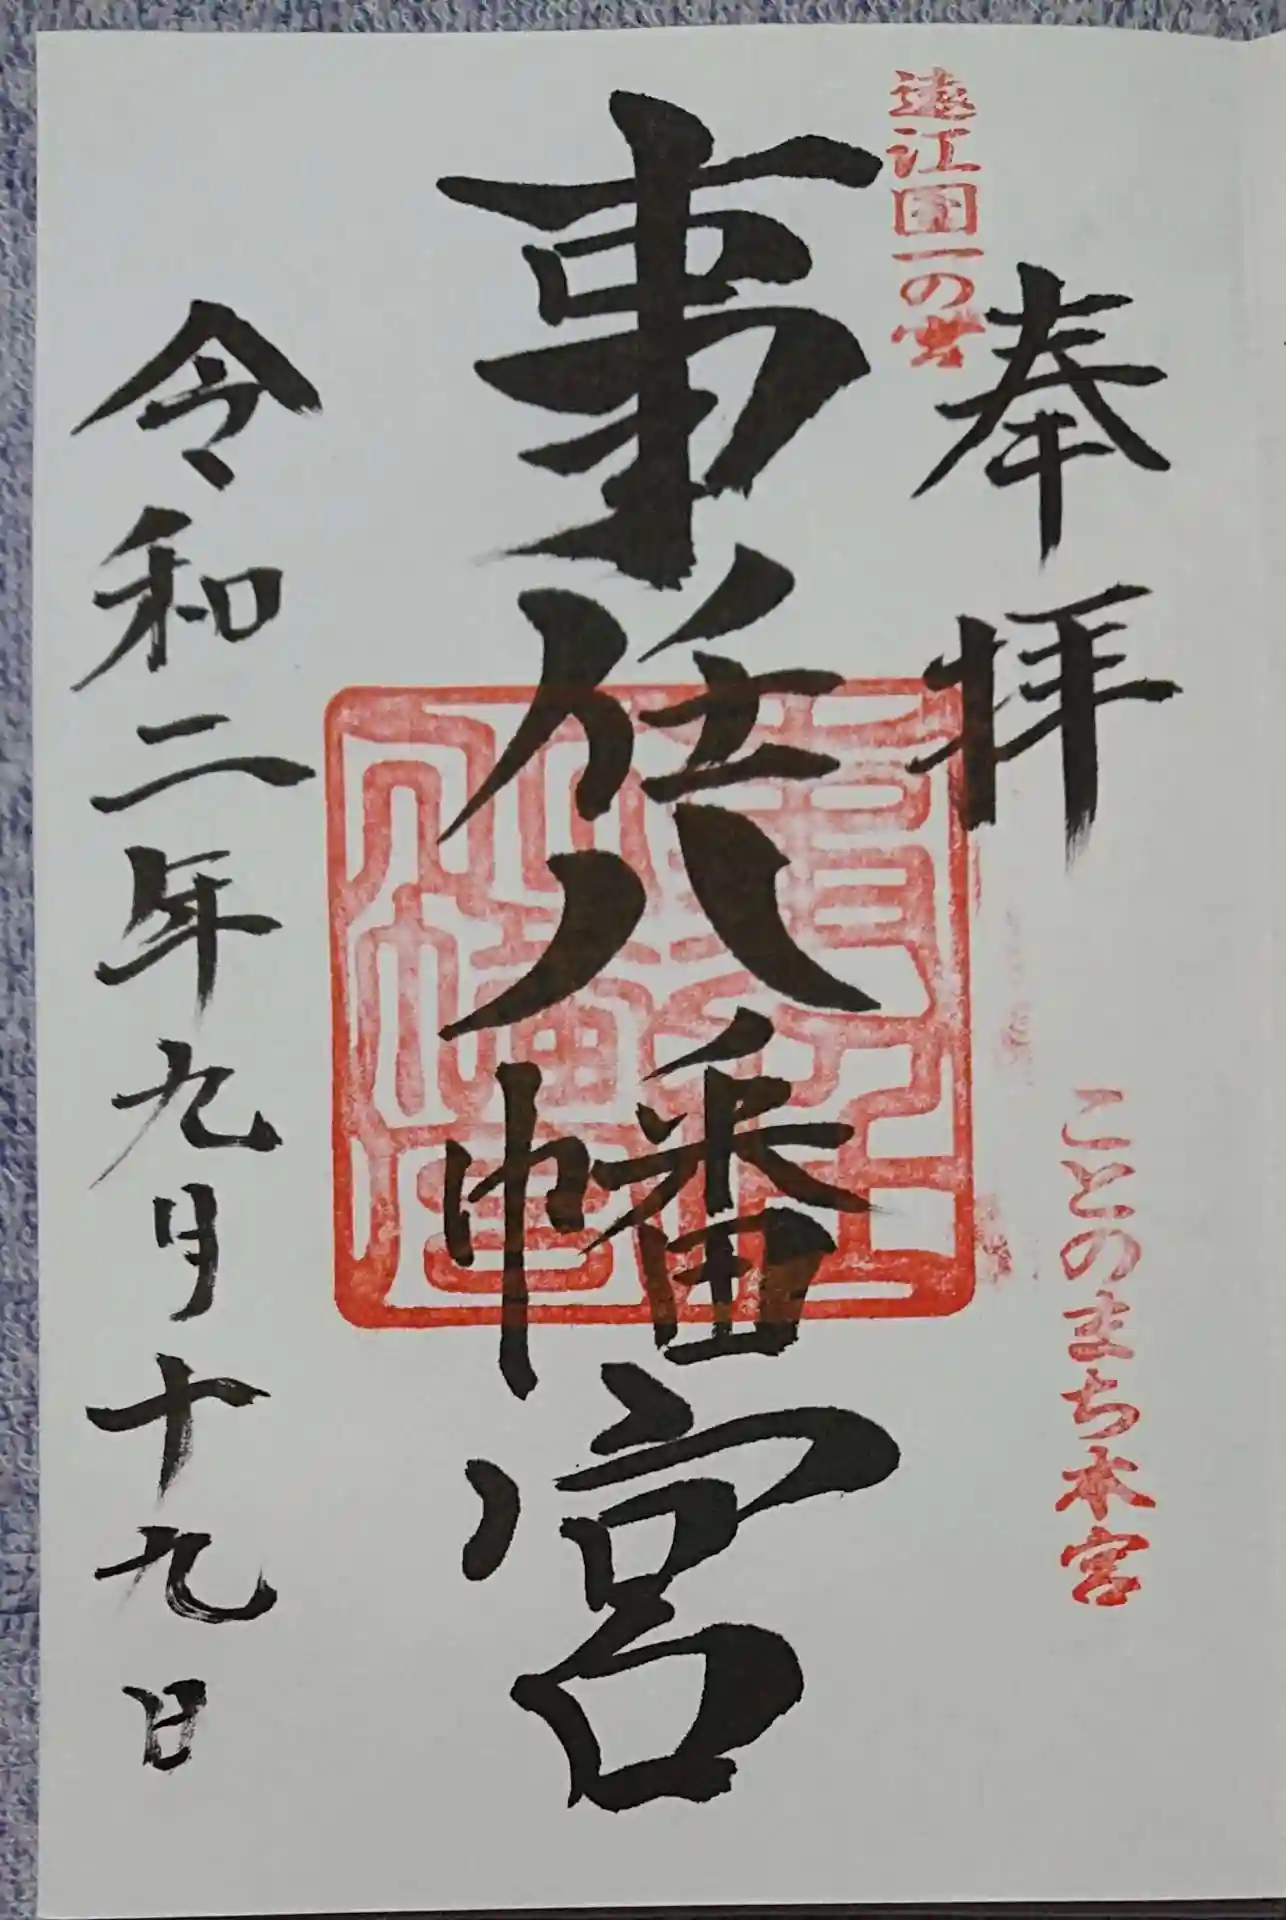 奉拝
ことのまち本宮
遠江国一の宮
事任八幡宮
事任
八幡宮
令和二年九月十九日